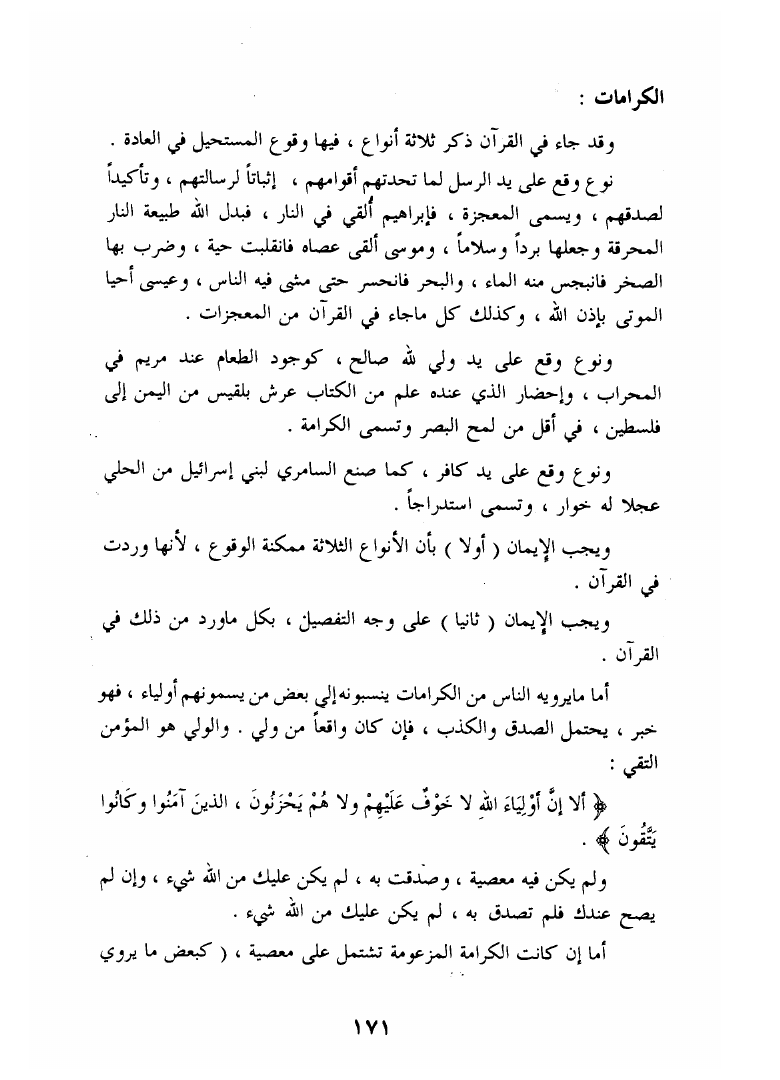 الكرامات :
وقد جاء في القرآن ذكر ثلاثة أنواع ، فيها وقوع المستحيل في العادة .
نوع وقع على يد الرسل لما تحدتهم أقوامهم ، إثباتاً لرسالتهم ، وتأكيداً
لصدقهم ، ويسمى المعجزة ، فإبراهيم أُلقي في النار ، فبدل الله طبيعة النار
المحرقة وجعلها برداً وسلاماً ، وموسى ألقى عصاه فانقلبت حية ، وضرب بها
الصخر فانبجس منه الماء ، والبحر فانحسر حتى مشى فيه الناس ، وعيسى أحيا
الموتى بإذن الله ، وكذلك كل ماجاء في القرآن من المعجزات .
ونوع وقع على يد ولي لله صالح ، كوجود الطعام عند مريم في
المحراب ، وإحضار الذي عنده علم من الكتاب عرش بلقيس من اليمن إلى
فلسطين ، في أقل من لمح البصر وتسمى الكرامة .
ونوع وقع على يد كافر ، كما صنع السامري لبني إسرائيل من الحلي
عجلا له خوار ، وتسمى استدراجاً .
ويجب الإيمان ( أولا ) بأن الأنواع الثلاثة ممكنة الوقوع ، لأنها وردت
في القرآن .
ويجب الإيمان ( ثانيا ) على وجه التفصيل ، بكل ماورد من ذلك في
القرآن .
أما مايرويه الناس من الكرامات ينسبونه إلى بعض من يسمونهم أولياء ، فهو
خبر ، يحتمل الصدق والكذب ، فإن كان واقعاً من ولي . والولي هو المؤمن
التقي :
﴿ ألا إنَّ أوْلِيَاءَ اللهِ لا خَوْفٌ عَلَيْهِمْ ولا هُمْ يَحْزَنُونَ ، الذينَ آمَنُوا وكَانُوا
يَتَّقُونَ ﴾ .
ولم يكن فيه معصية ، وصدقت به ، لم يكن عليك من الله شيء ، وإن لم
يصح عندك فلم تصدق به ، لم يكن عليك من الله شيء .
أما إن كانت الكرامة المزعومة تشتمل على معصية ، ( كبعض ما يروي
١٧١